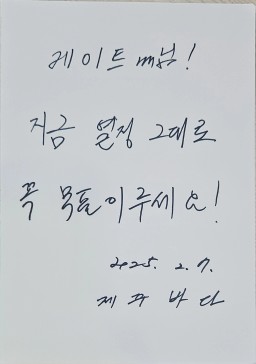 케이트m님!
지금 열정 그대로
꼭 목표이루세요!
2025. 2. 7.
제주 바다